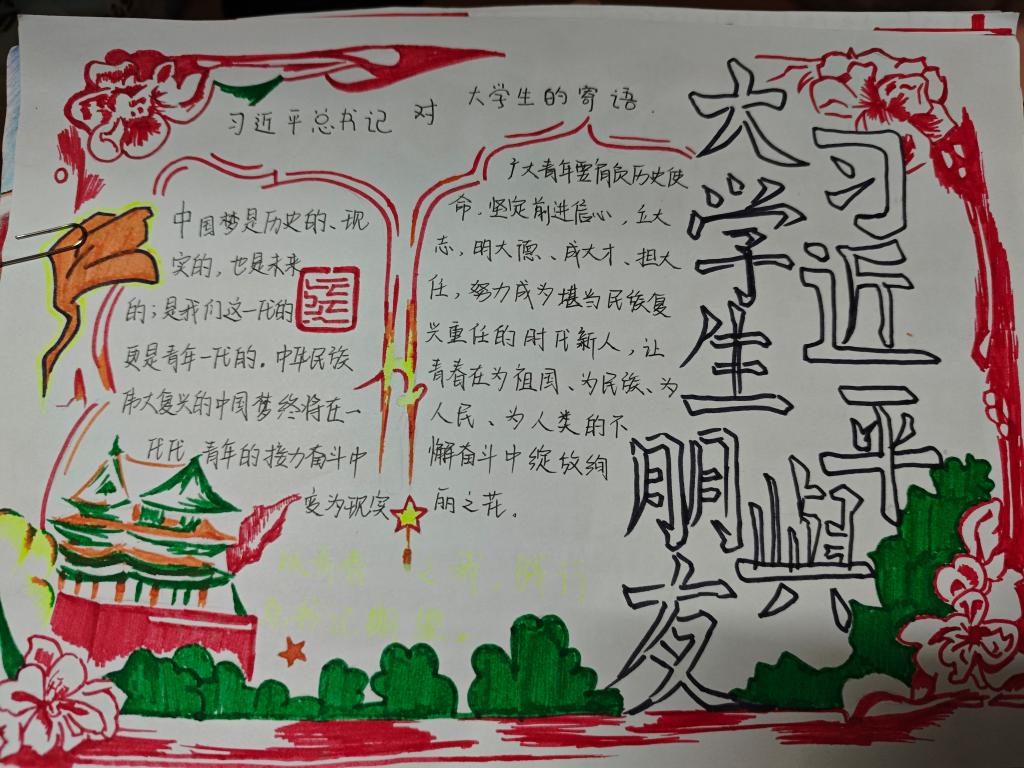 习近平與
大学生朋友
习近平总书记对大学生的寄语
中国梦是历史的、现
实的,也是未来
的;是我们这一代的
更是青年一代的。中华民族
伟大复兴的中国梦终将在一
代代 青年的接力奋斗中
变为现实
广大青年要肩负历史使
命,坚定前进信心,立大
志、明大德、成大才、担大
任,努力成为堪当民族复
兴重任的时代新人,让
青春在为祖国、为民族、为
人民、为人类的不
懈奋斗中绽放绚
丽之花。